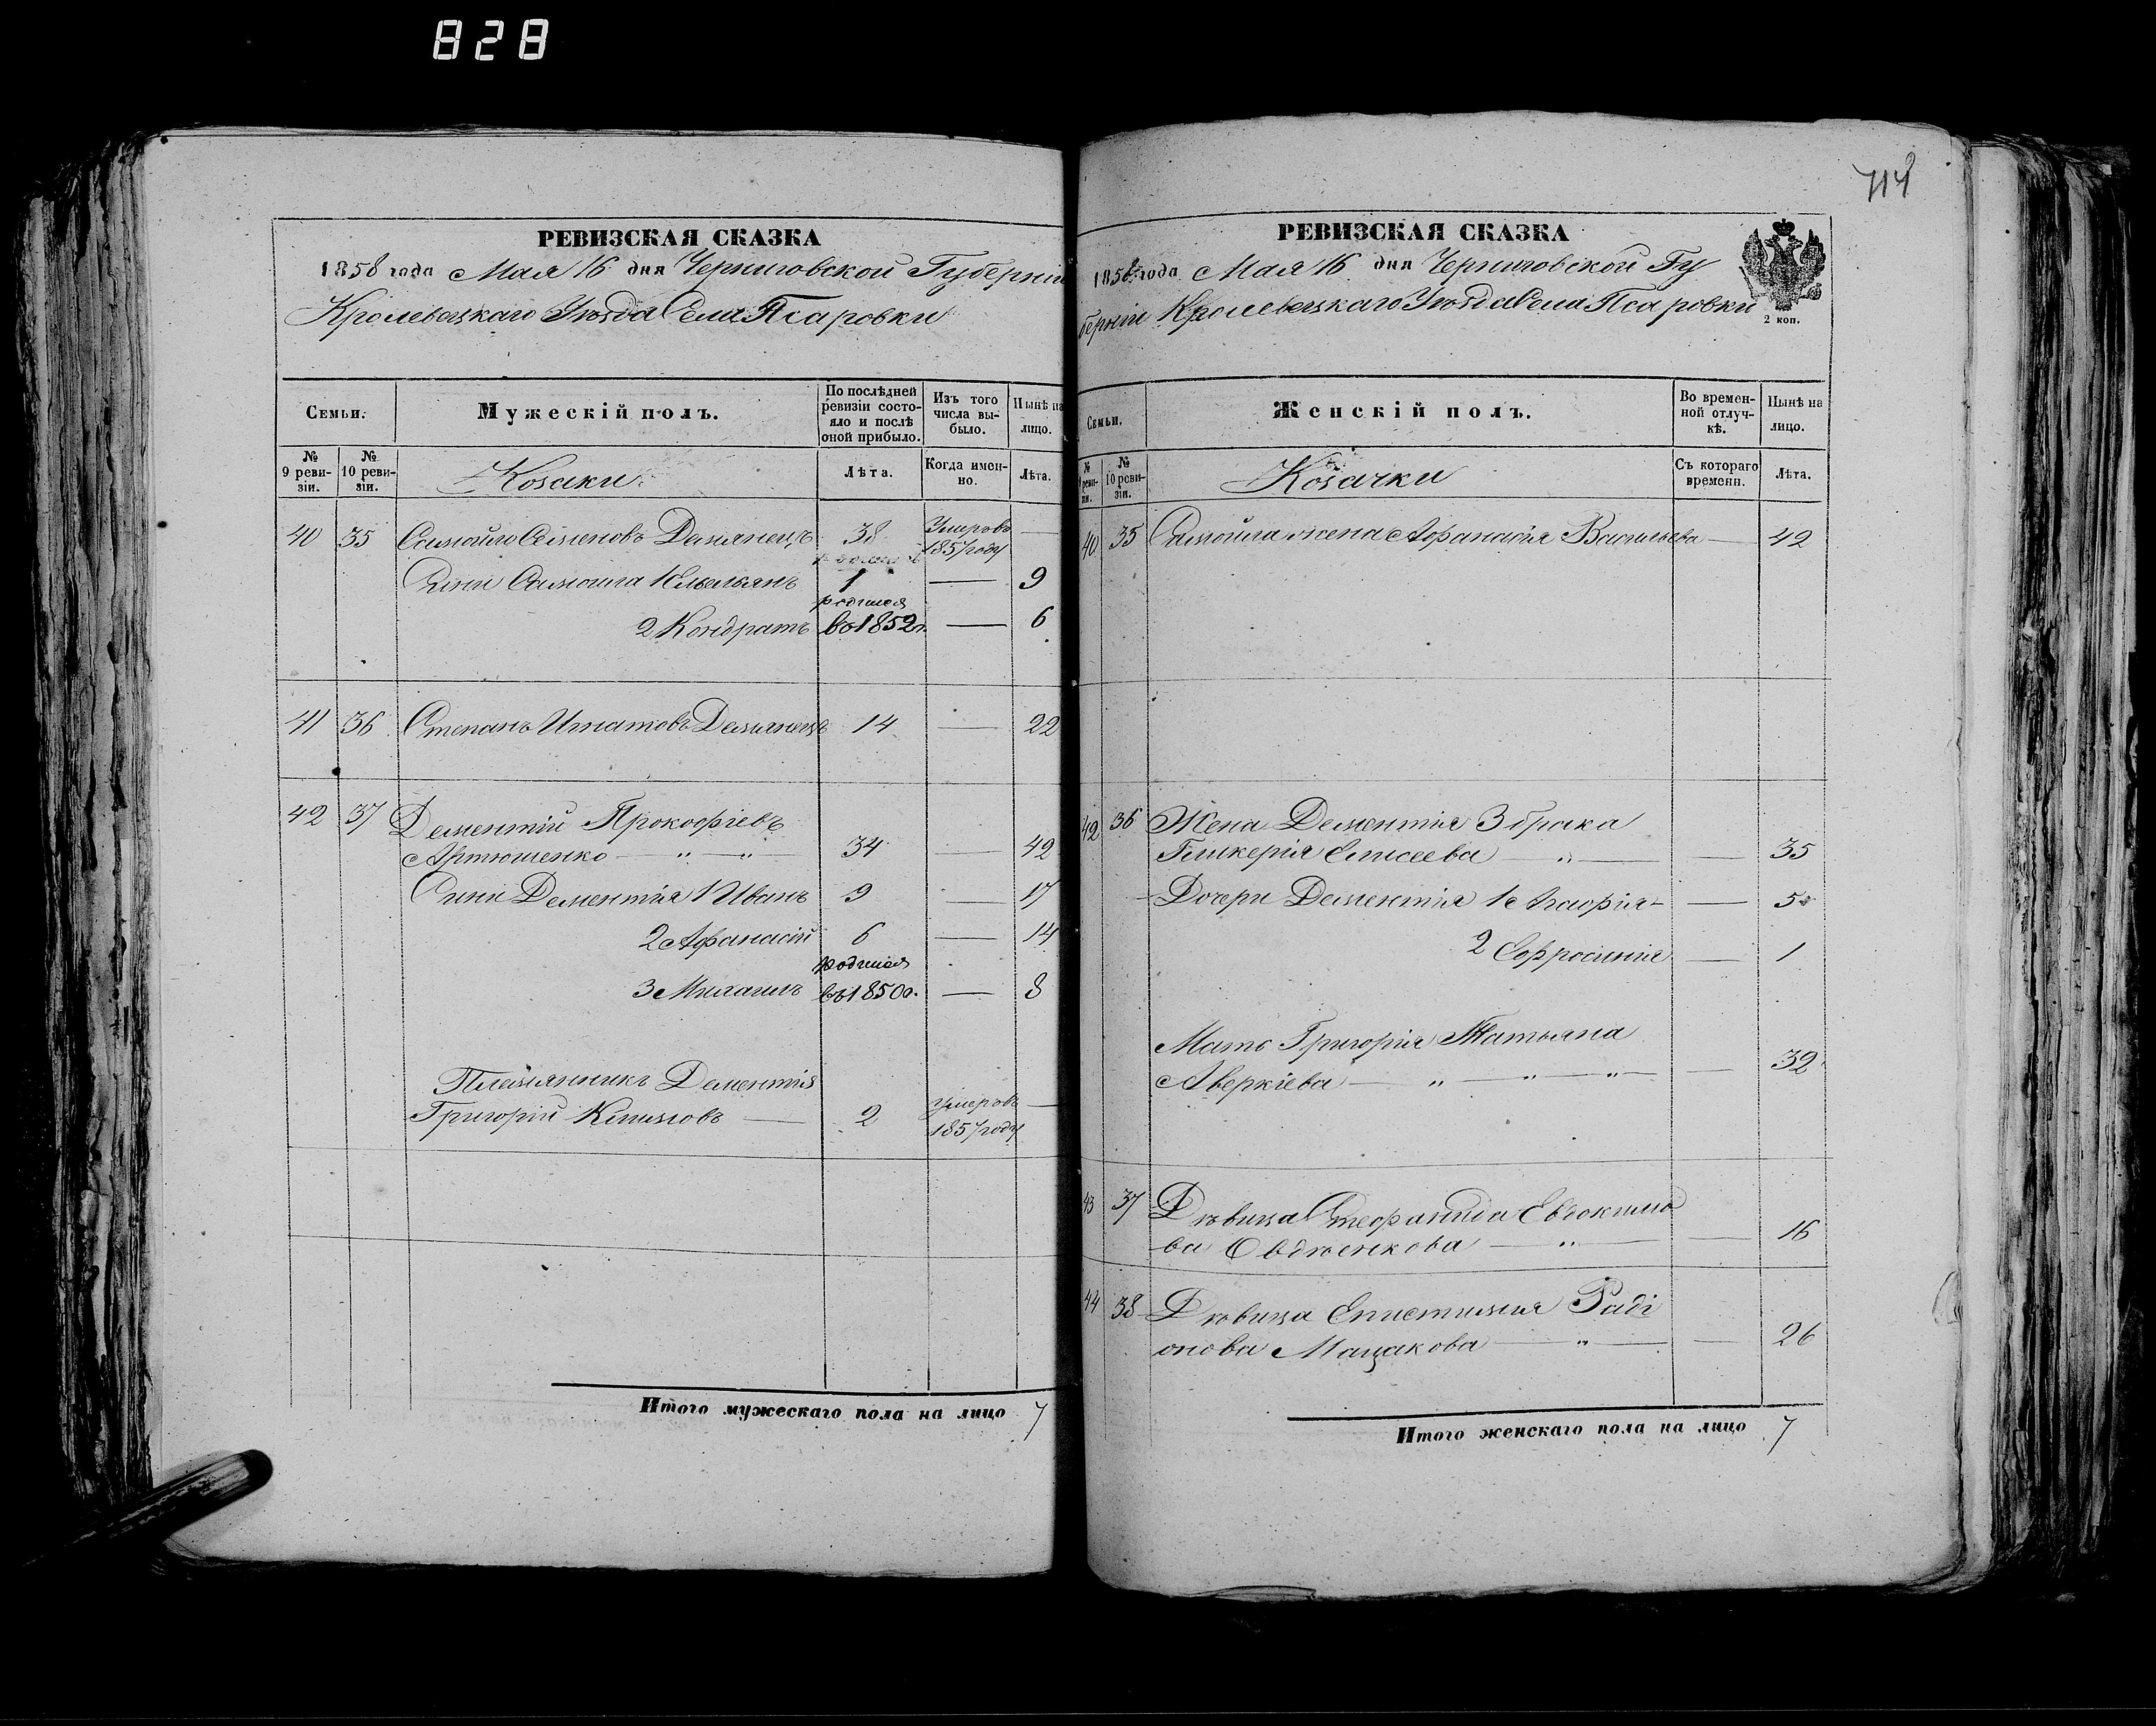 828
РЕВИЗСКАЯ СКАЗКА
1858 года Мая 16 дня Черниговской Губерніи
Кролевецкаго Уѣзда Села Псаровки
Семьи.
Мужескій полъ.
По послѣдней ревизіи состояло и послѣ оной прибыло.
Изъ того числа выбыло.
Нынѣ на лицо.
№ 9 ревизіи.
№ 10 ревизіи.
Козаки
Лѣта.
Когда именно.
Лѣта.
40 35 Самойло Семеновъ Демянецъ 38 Умеръ въ 1857 году —
Сини Самоила 1 Емельянъ 1 — 9
2 Кондратъ родился въ 1852 г. — 6
41 36 Степанъ Игнатовъ Демянецъ 14 — 22
42 37 Дементій Прокофіевъ
Артюшенко — „ — „ — 34 — 42
Сини Дементія 1 Иванъ 9 — 17
2 Афанасій 6 — 14
3 Михаилъ родился въ 1850 г. — 8
Племянникъ Дементія
Григорій Климовъ — 2 Умеръ въ 1857 году —
Итого мужескаго пола на лицо 7
714
РЕВИЗСКАЯ СКАЗКА
1858 года Мая 16 дня Черниговской Гу
берніи Кролевецкаго Уѣзда Села Псаровки
2 коп.
Семьи.
Женскій полъ.
Во временной отлучкѣ.
Нынѣ на лицо.
№ 9 ревизіи.
№ 10 ревизіи.
Козачки
Съ котораго времени.
Лѣта.
40 35 Самойла жена Афанасія Васильева — 42
42 36 Жена Дементія 3 брака
Гликерія Елисеева — „ — — 35
Дочери Дементія 1 Агафія — — 5
2 Ефросинія — 1
Мать Григорія Татьяна
Аверкіева — „ — „ — „ — — 32
43 37 Дѣвица Стефанида Евдокимо
ва Овдѣенкова — „ — — 16
44 38 Дѣвица Епистимия Раді
онова Мацакова — „ — — 26
Итого женскаго пола на лицо 7